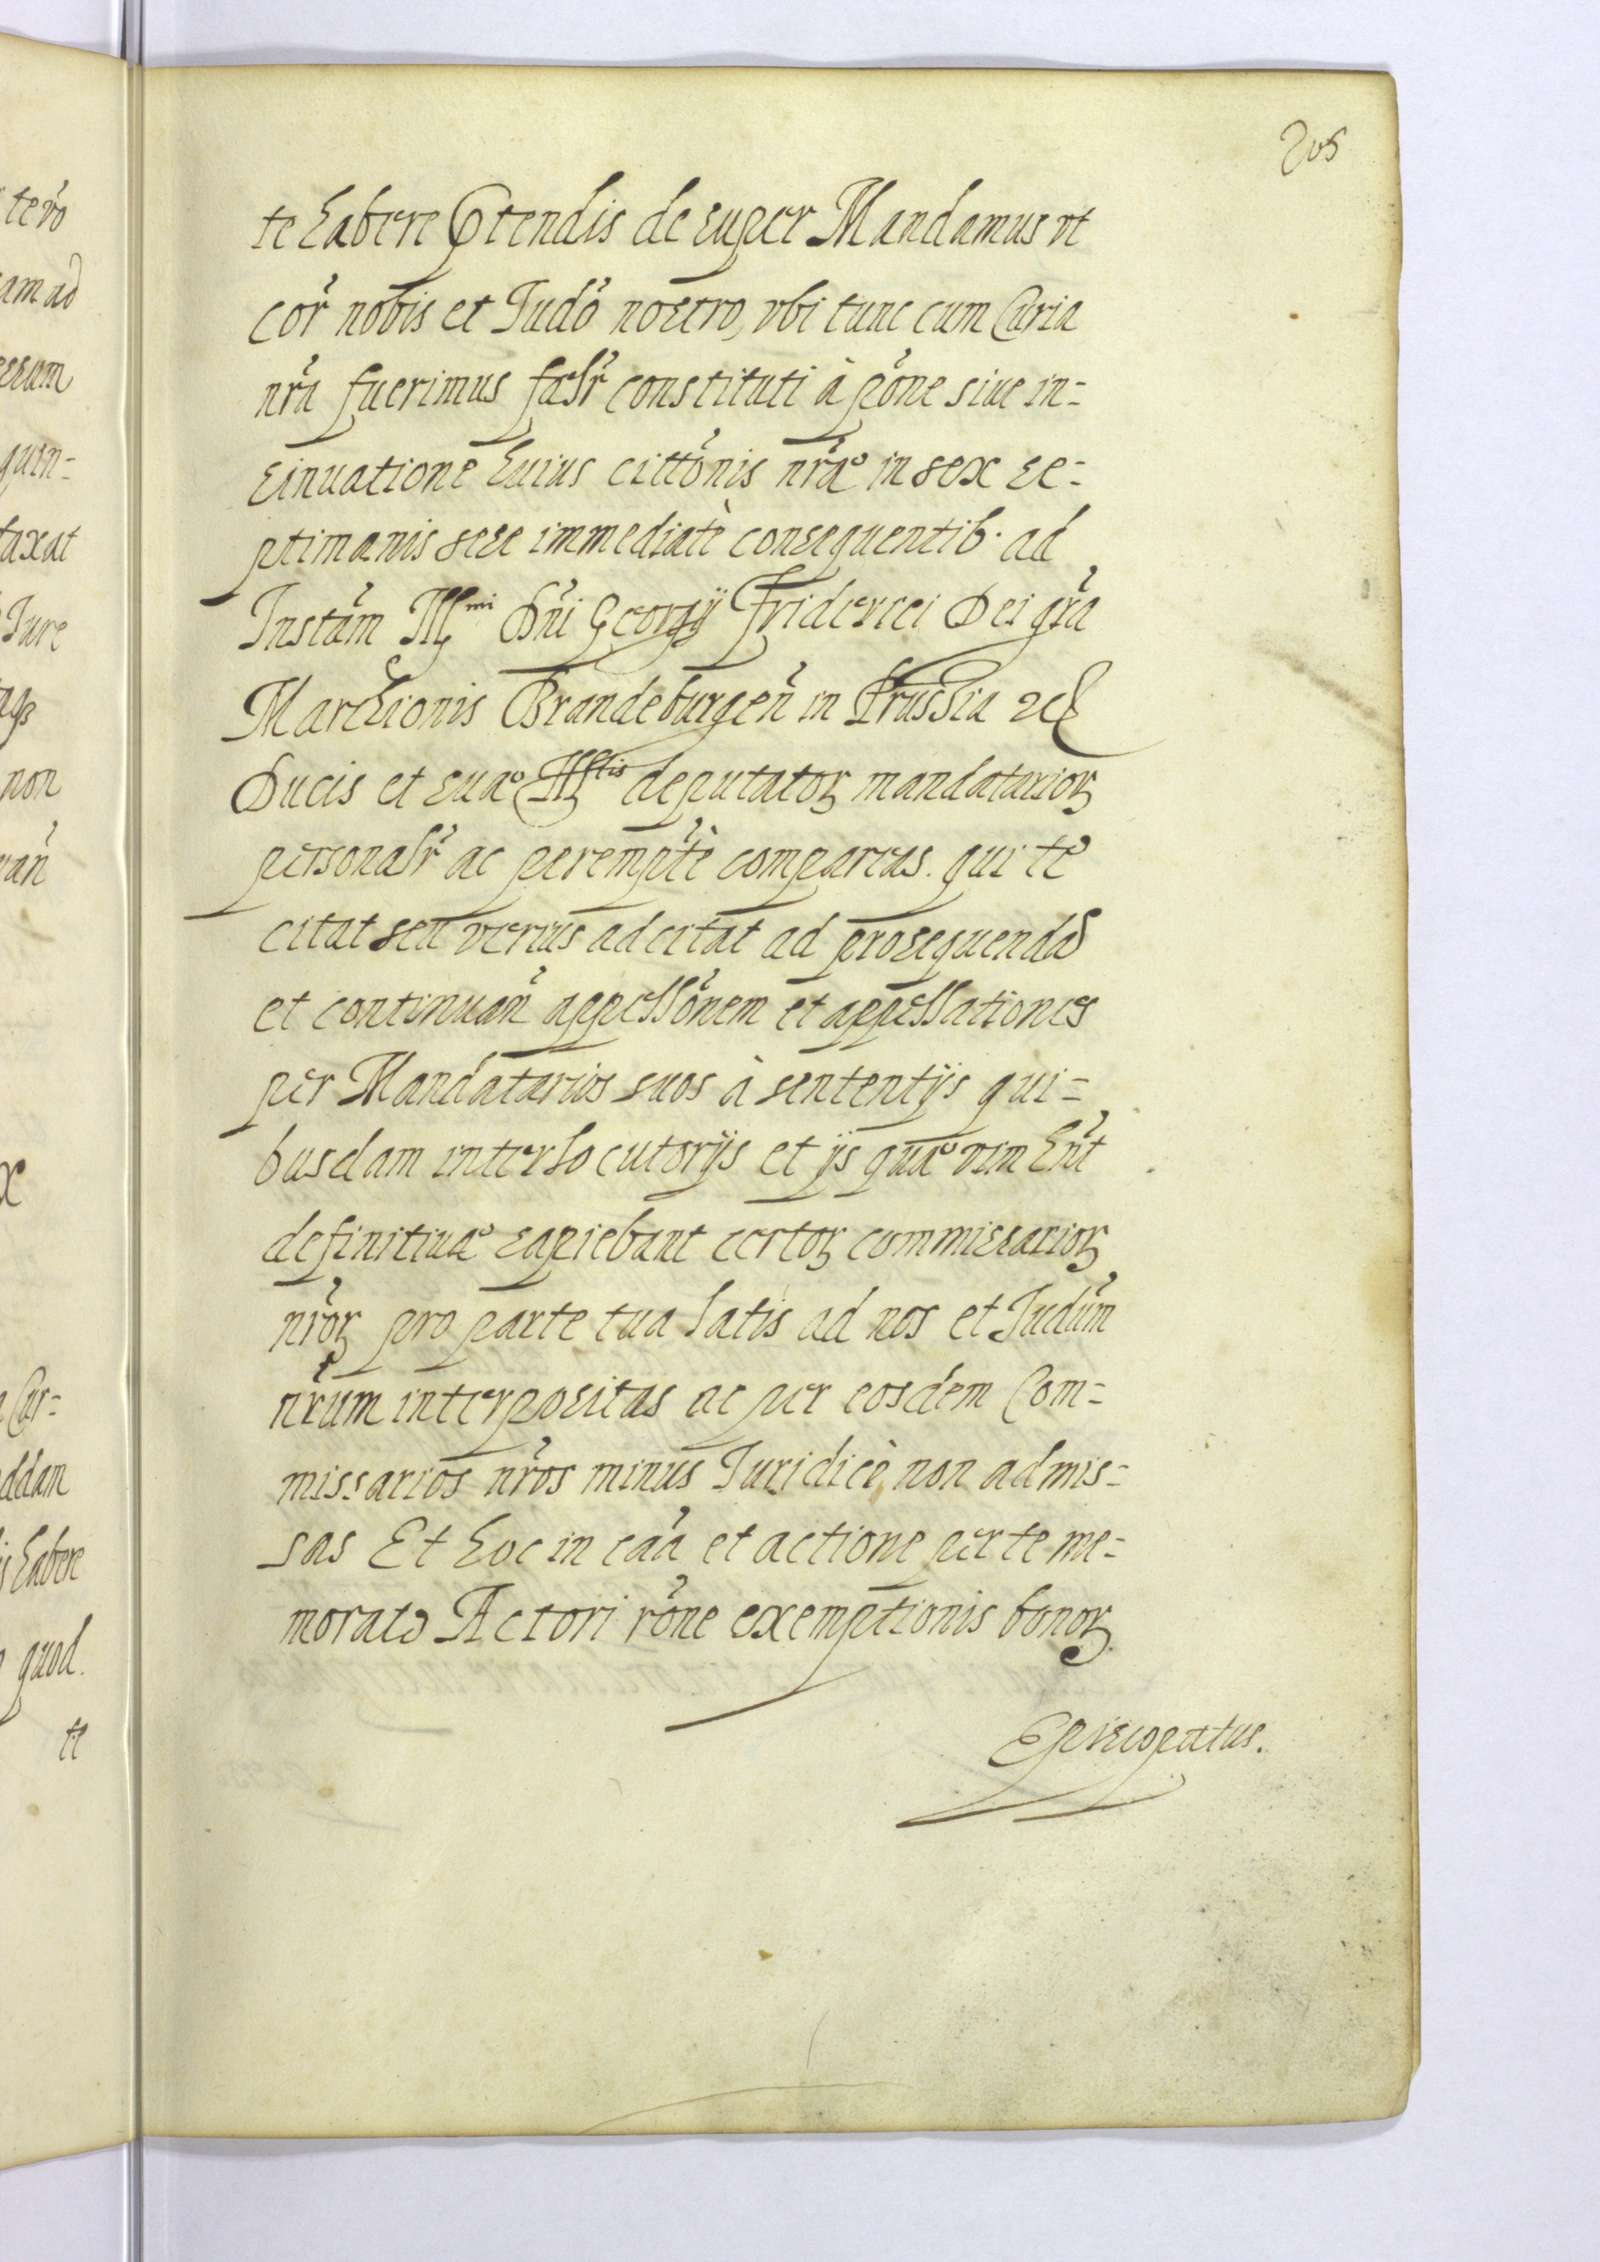 205
te habere ptendis de super Mandamus vt
cor̃ nobis et Judõ nostro, vbi tunc cum Curia
nr̃a fuerimus falr̃ constituti à põne siue in=
sinuatione huius cittõnis nr̃ae in sex se=
ptimanis sese immediatè consequentib. ad
Instãm Illmi Dñi Georgij Friderici Dei gr̃a
Marchionis Brandeburgeñ in Prussia etc
Ducis et suae Illtis deputatoꝝ mandatarioꝝ
personalr̃ ac perempt̃è compareas. qui te
citat seu verius adcitat ad prosequendas
et continuañ appellõnem et appellationes
per Mandatarios suos à sententijs qui=
busdam interlocutorijs et ijs quae vim hñt
definitiuae sapiebant certoꝝ commissarioꝝ
nr̃oꝝ pro parte tua latis ad nos et Judũm
nr̃um interpositas ac per eosdem Com=
missarios nr̃os minus Juridicè non admis=
sas Et hoc in cãa et actione per te me=
morato Actori rõne exemptionis bonoꝝ
Episcopatus.
terõ
am ad
ssum
quin=
taxat
Jure
non
Cur=
ddam
is habere
quod.
te